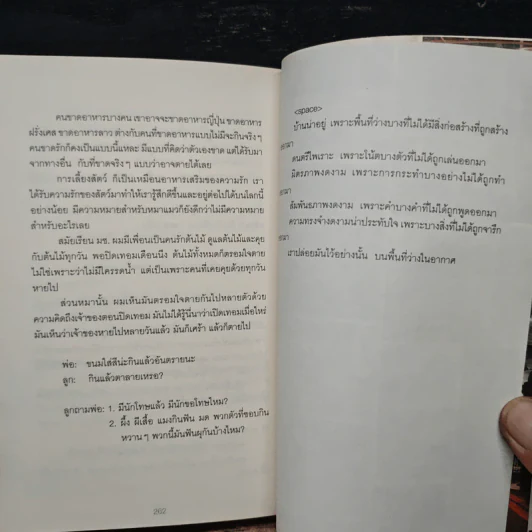 คนขาดอาหารบางคน เขาอาจจะขาดอาหารญี่ปุ่น ขาดอาหาร
ฝรั่งเศส ขาดอาหารลาว ต่างกับคนที่ขาดอาหารแบบไม่มีจะกินจริงๆ
คนขาดรักก็คงเป็นแบบนี้แหละ มีแบบที่คิดว่าตัวเองขาด แต่ได้รับมา
จากทางอื่น กับที่ขาดจริงๆ แบบว่าอาจตายได้เลย
การเลี้ยงสัตว์ ก็เป็นเหมือนอาหารเสริมของความรัก เรา
ได้รับความรักของสัตว์มาทำให้เรารู้สึกดีขึ้นและอยู่ต่อไปได้บนโลกนี้
อย่างน้อย มีความหมายสำหรับหมาแมวก็ยังดีกว่าไม่มีความหมาย
สำหรับอะไรเลย
สมัยเรียน มช. ผมมีเพื่อนเป็นคนรักต้นไม้ ดูแลต้นไม้และคุย
กับต้นไม้ทุกวัน พอปิดเทอมเดือนนึง ต้นไม้ทั้งหมดก็ตรอมใจตาย
ไม่ใช่เพราะว่าไม่มีใครรดน้ำ แต่เป็นเพราะคนที่เคยคุยด้วยทุกวัน
หายไป
ส่วนหมานั้น ผมเห็นมันตรอมใจตายกันไปหลายตัวด้วย
ความคิดถึงเจ้าของตอนปิดเทอม มันไม่ได้รู้นี่นาว่าเปิดเทอมเมื่อไหร่
มันเห็นว่าเจ้าของหายไปหลายวันแล้ว มันก็เศร้า แล้วก็ตายไป
พ่อ: ขนมใส่สีน่ะกินแล้วอันตรายนะ
ลูก: กินแล้วตาลายเหรอ?
ลูกถามพ่อ: 1. มีนักโทษแล้ว มีนักขอโทษไหม?
2. ผึ้ง ผีเสื้อ แมงกินฟัน มด พวกตัวที่ชอบกิน
หวานๆ พวกนี้มันฟันผุกันบ้างไหม?
262
<space>
บ้านน่าอยู่ เพราะพื้นที่ว่างบางที่ไม่ได้มีสิ่งก่อสร้างที่ถูกสร้าง
ออกมา
ดนตรีไพเราะ เพราะโน้ตบางตัวที่ไม่ได้ถูกเล่นออกมา
มิตรภาพงดงาม เพราะการกระทำบางอย่างไม่ได้ถูกทำ
ออกมา
สัมพันธภาพงดงาม เพราะคำบางคำที่ไม่ได้ถูกพูดออกมา
ความทรงจำงดงามน่าประทับใจ เพราะบางสิ่งที่ไม่ได้ถูกจารึก
ออกมา
เราปล่อยมันไว้อย่างนั้น บนพื้นที่ว่างในอากาศ